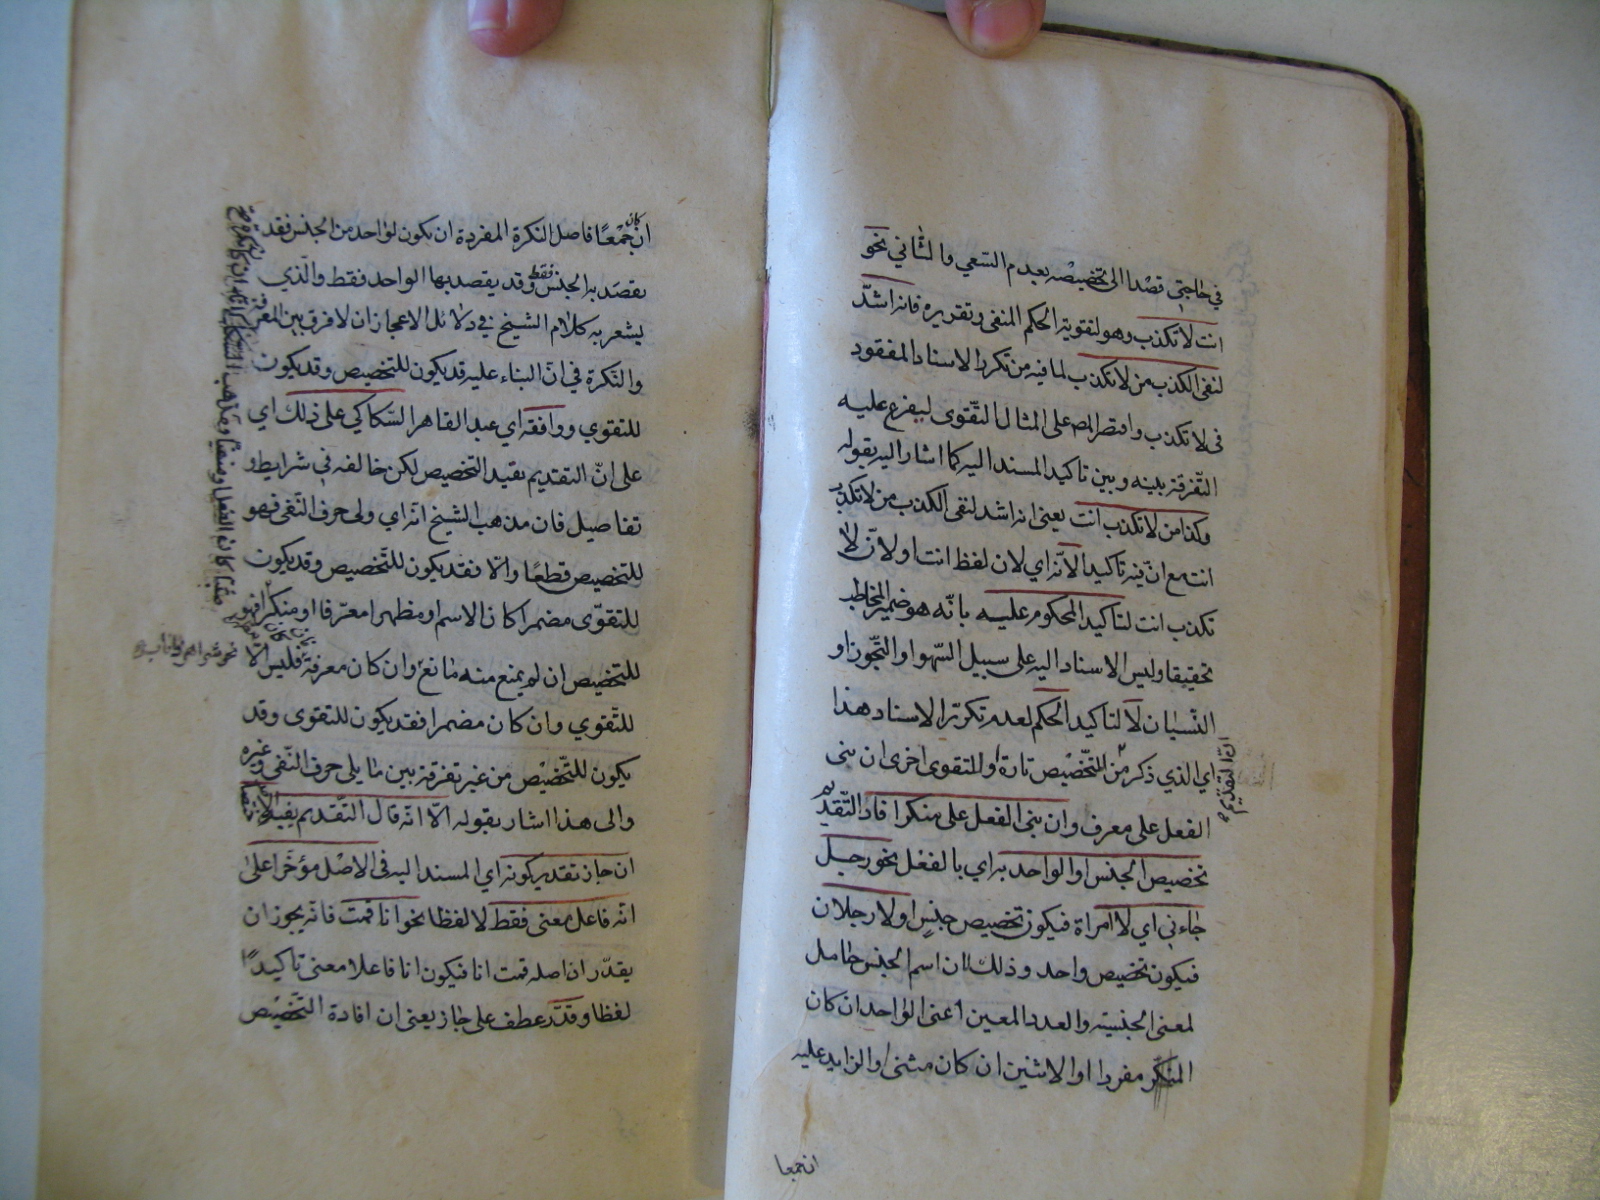 في حاجتي قصدا الى تخصيصه بعدم السعي والثاني نحو
انت لا تكذب وهو لتقوية الحكم المنفي وتقريره فانه اشدّ
لنفي الكذب من لا تكذب لما فيه من تكرر الاسناد المفقود
في لا تكذب واقتصر المص على المثال التقوى ليفرع عليه
التفرقة بينه وبين تاكيد المسند اليه كما اشار اليه بقوله
وكذا من لا تكذب انت يعني انه اشد لنفي الكذب من لا تكذب
انت مع انّ فيه تاكيدا لانه اي لان لفظ انت او لان لا
تكذب انت لتاكيد المحكوم عليه بانّه هو ضمير المخاطب
تحقيقا وليس الاسناد اليه على سبيل السّهو او التّجوز او
النّسيان لا لتاكيد الحكم لعدم تكرّر الاسناد هذا
اي الذي ذكر من التّخصيص تارة وللتقوى اخرى ان بنى
انّ التقديم
الفعل على معرف وان بنى الفعل على منكر افاد التّقديم
تخصيص الجنس او الواحد به اي بالفعل نحو رجل
جاءني اي لا امراة فيكون تخصيص جنس او لا رجلان
فيكون تخصيص واحد وذلك لان اسم الجنس حامل
لمعنى الجنسيته والعدد المعين اعنى الواحد ان كان
المنكّر مفردا او الاثنين ان كان مثنى او الزايد عليه
ان جمعا
ان كان جمعًا فاصل النكرة المفردة ان يكون لواحد من الجنس فقد
يقصد به الجنس فقط وقد يقصد بها الواحد فقط والّذي
يشعر به كلام الشيخ في دلائل الاعجاز ان لا فرق بين المعرفة
والنّكرة في انّ البناء عليه قد يكون للتخصيص وقد يكون
للتقوي ووافقه اي عبد القاهر السّكاكي على ذلك اي
على انّ التقديم يفيد التخصيص لكن خالفه في شرايط و
تفاصيل فان مذهب الشيخ انّه اي ولى حرف النّفى فهو
للتخصيص قطعًا والّا فقد يكون للتّخصيص وقد يكون
للتقوّى مضمرا كان الاسم او مظهرا معرّفا او منكرا
للتخصيص ان لم يمنع منه مانع وان كان معرفة فليس الّا
للتّقوي وان كان مضمرا فقد يكون للتقوى وقد
يكون للتّخصيص من غير تفرقة بين ما يلى حرف النّفى وغيره
والى هذا اشار بقوله الّا انّه قال التّقديم يفيد الاختصاص
ان جاز تقدير كونه اي المسند اليه في الاصل مؤخّرا على
انّه فاعل معنى فقط لا لفظا نحو انا قمت فانّه يجوز ان
يقدّر ان اصله قمت انا فيكون انا فاعلا معنى تاكيدًا
لفظا وقدّر عطف على جاز يعنى ان افادة التّخصيص